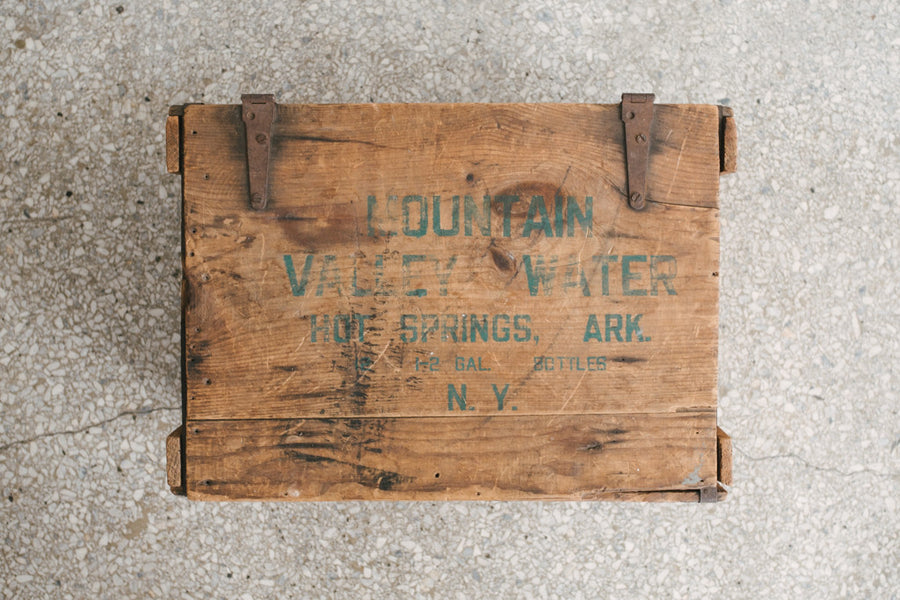 MOUNTAIN
VALLEY WATER
HOT SPRINGS, ARK.
1-2 GAL. BOTTLES
N. Y.